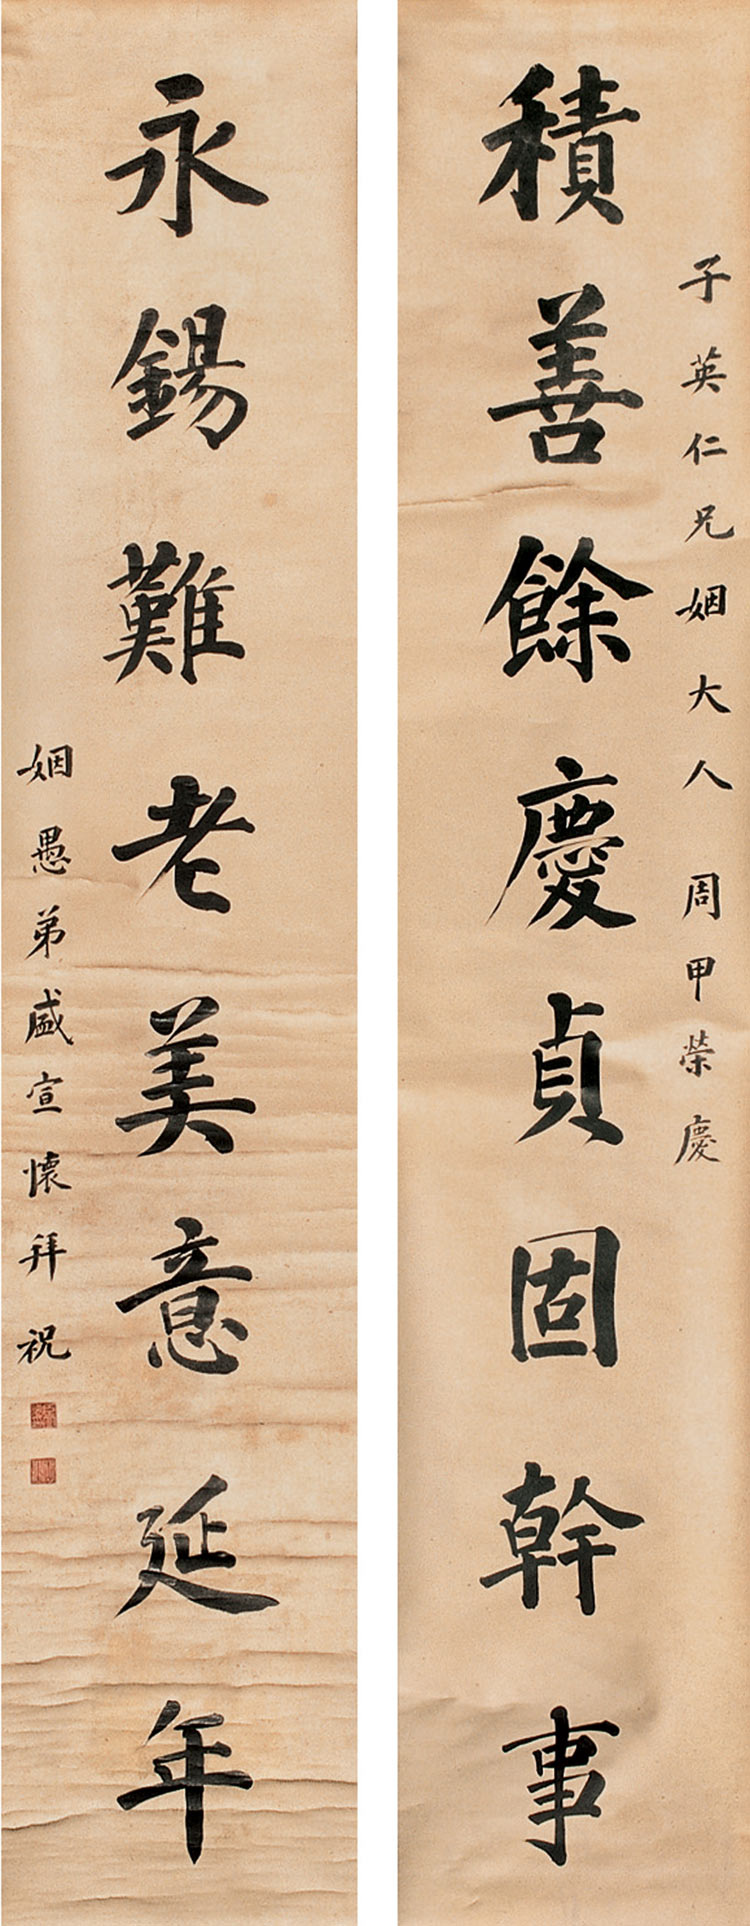 子英仁兄姻大人 周甲荣慶
積善餘慶貞固幹事
永錫難老美意延年
姻愚弟盛宣懷拜祝